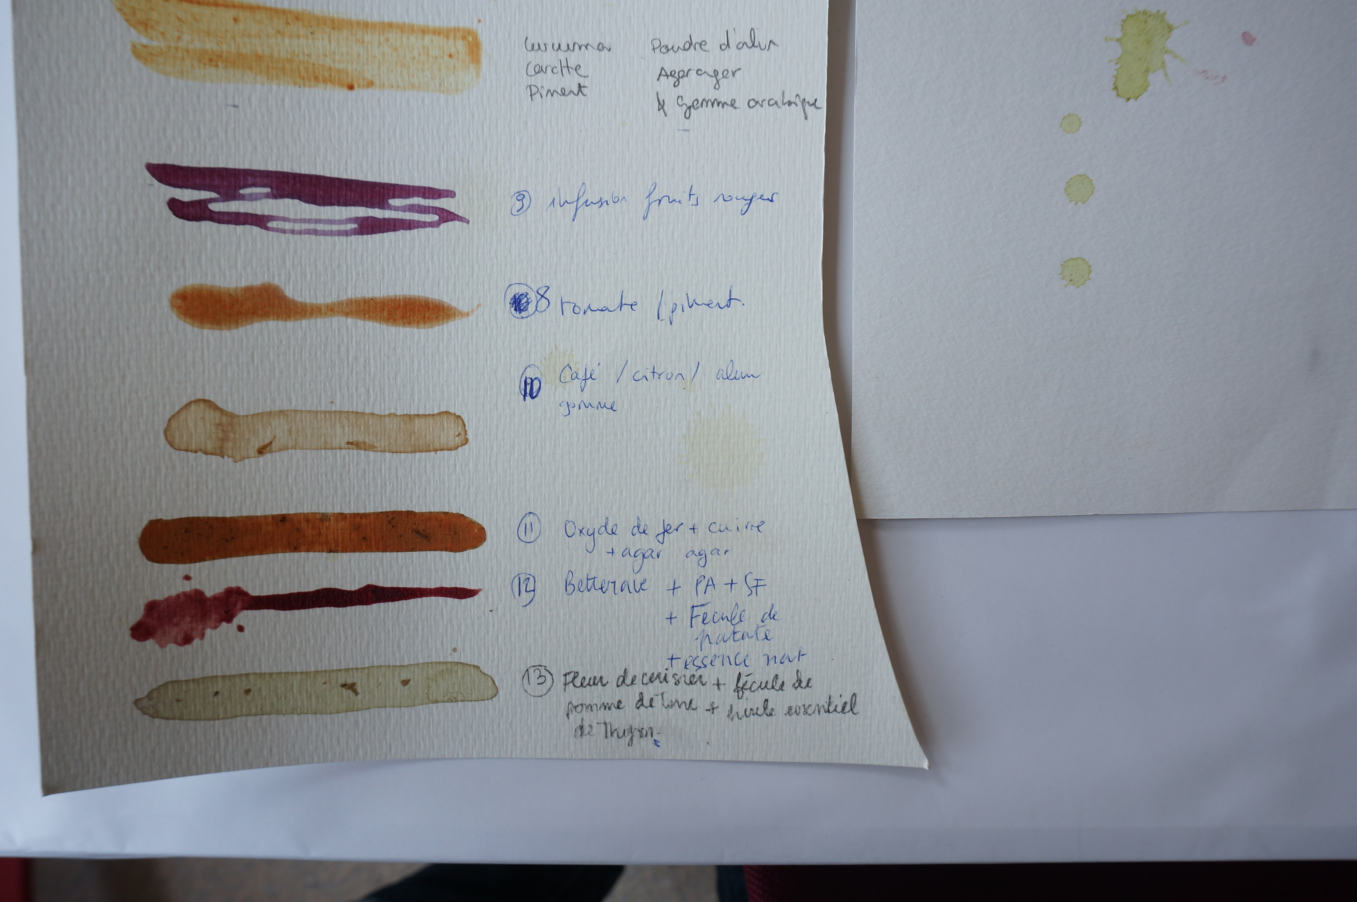 Curcuma Poudre d'alun
Carotte Agar agar
Piment & Gomme arabique
9 infusion fruits rouges
8 tomate / piment.
10 Café / citron / alun
gomme
11 Oxyde de fer + cuivre
+ agar agar
12 Betterave + PA + SF
+ Fécule de
patate
+ essence nat
13 Fleur de cerisier + fécule de
pomme de terre + huile essentiel
de Thym.